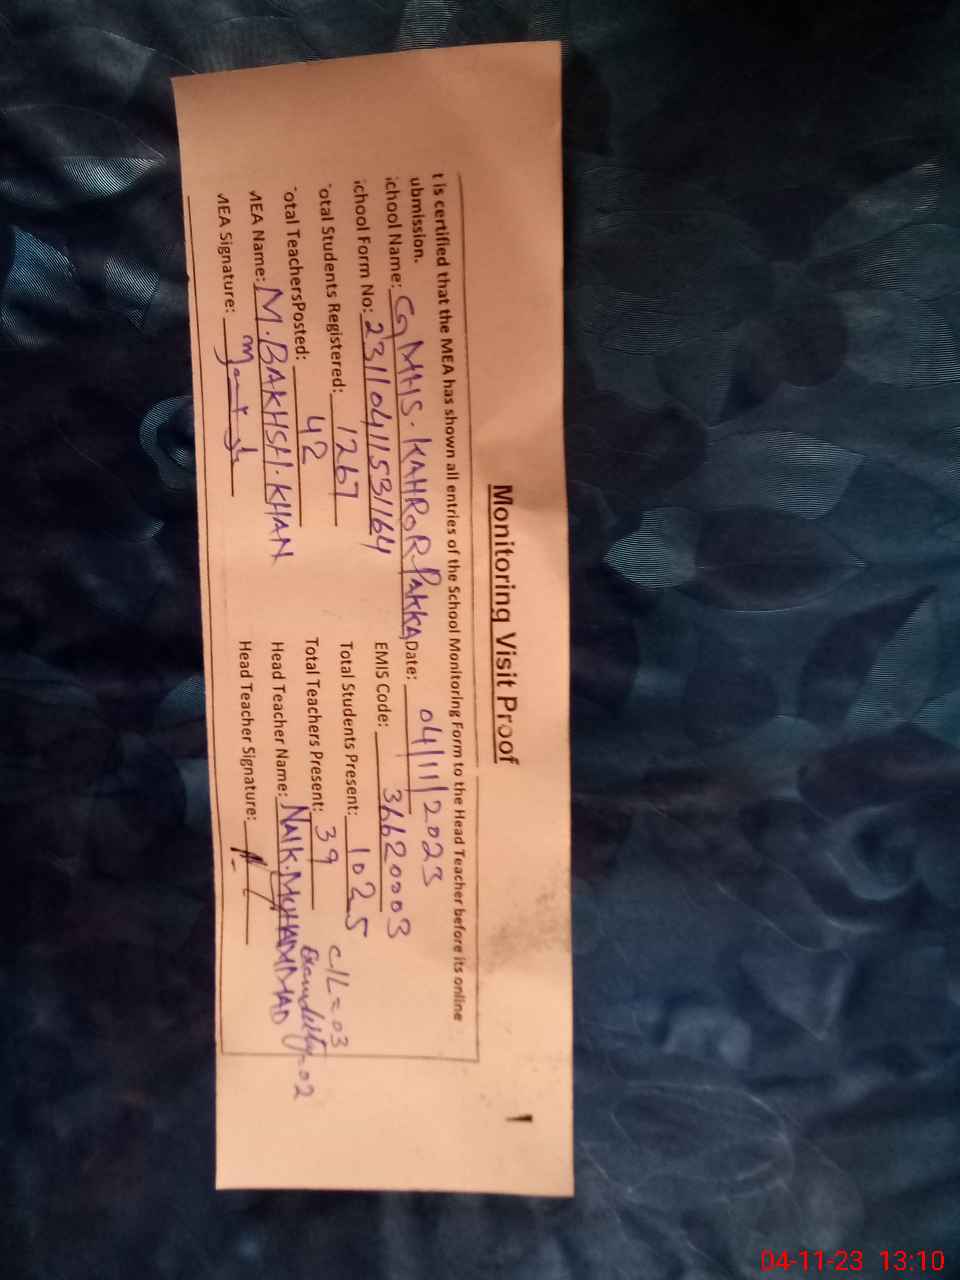 Monitoring Visit Proof
t is certified that the MEA has shown all entries of the School Monitoring Form to the Head Teacher before its online
ubmission.
chool Name: GMHS. KAHRoR PAKKA Date: 04/11/2023
chool Form No: 23110411531164 EMIS Code: 36620003
otal Students Registered: 1267 Total Students Present: 1025
otal TeachersPosted: 42 Total Teachers Present: 39 C/L = 03
MEA Name: M. BAKHSH. KHAN Head Teacher Name: NAIK. MOHAMMAD = 02
MEA Signature: Head Teacher Signature:
04-11-23 13:10